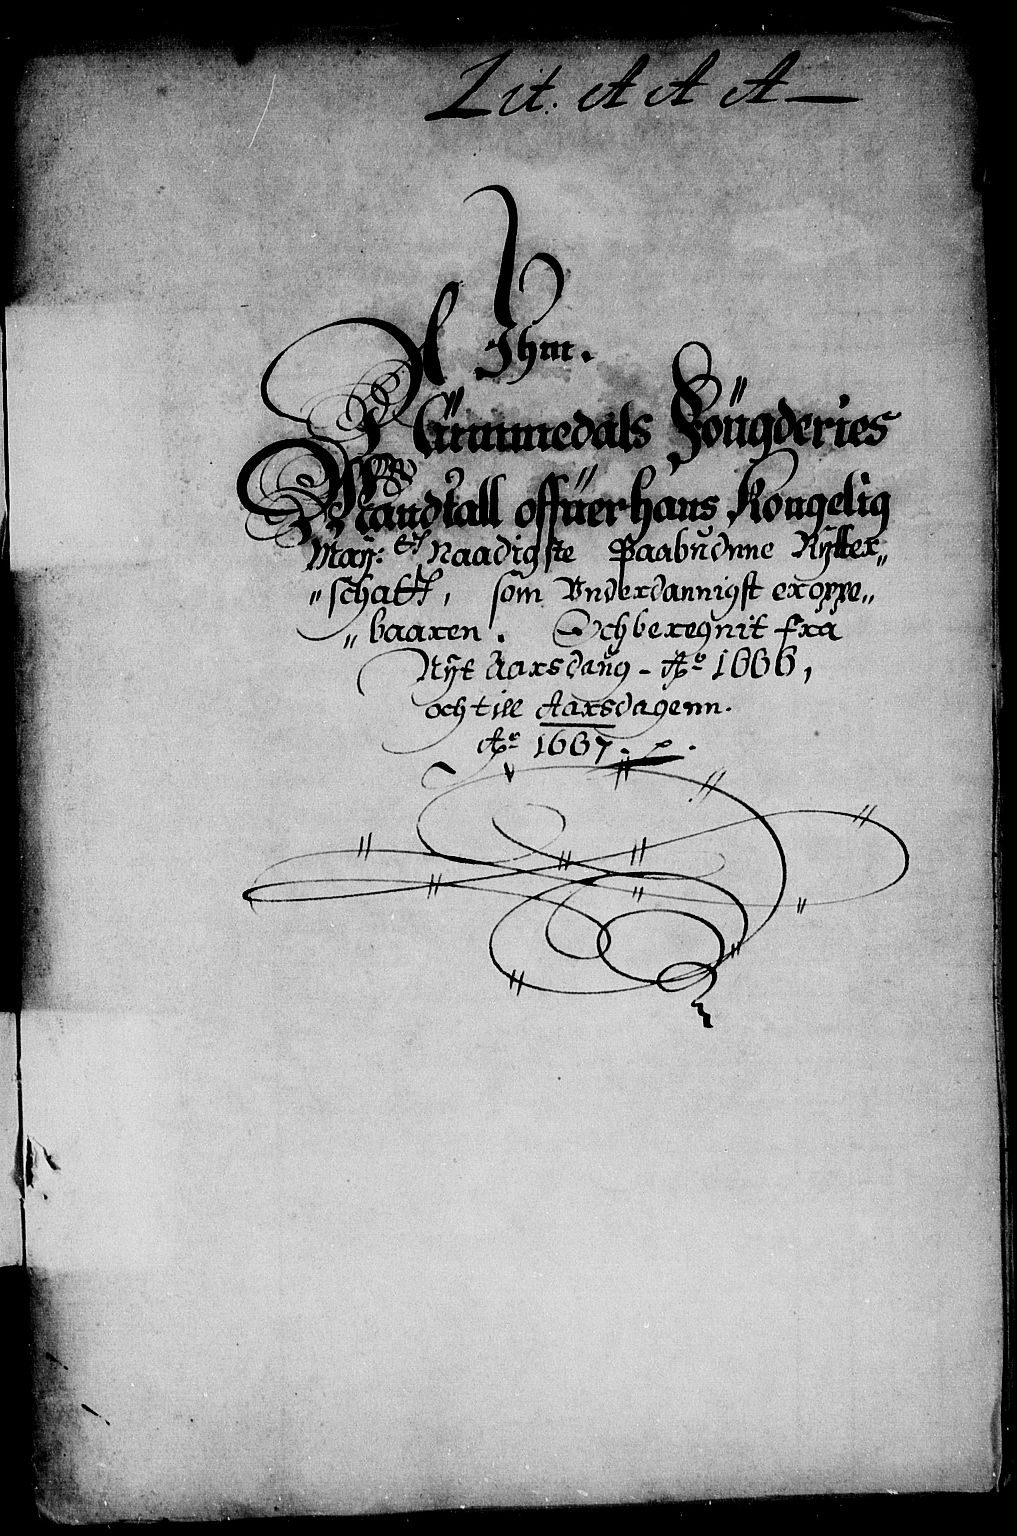 Lit. A A A
Ihm.
Nummedals Fougderies
Mandtall offuer hans Kongelig
May: tz Naadigste Paabudne Rÿtter„
„schatt, som Underdannigst er oppe„
„baaren. Och beregnit fra
Nÿt Aarsdaug - Ao 1666,
och till Aarsdagenn.
Ao 1667.